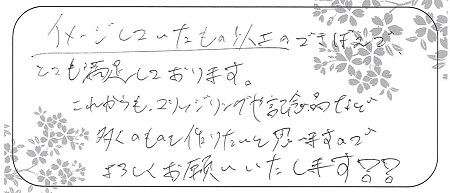 イメージしていたもの以上のできばえで、
とても満足しております。
これからも、エンゲージリングや記念品など
多くのものを作りたいと思いますので
よろしくお願いいたします!!